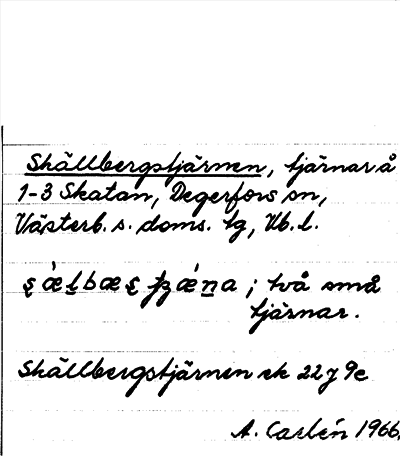 Skällbergstjärnen, tjärnar å
1-3 Skatan, Degerfors sn,
Västerb. s. doms. tg, Vb. l.
; två små
tjärnar.
Skällbergstjärnen ek 22J 9c
A. Carlén 1966.